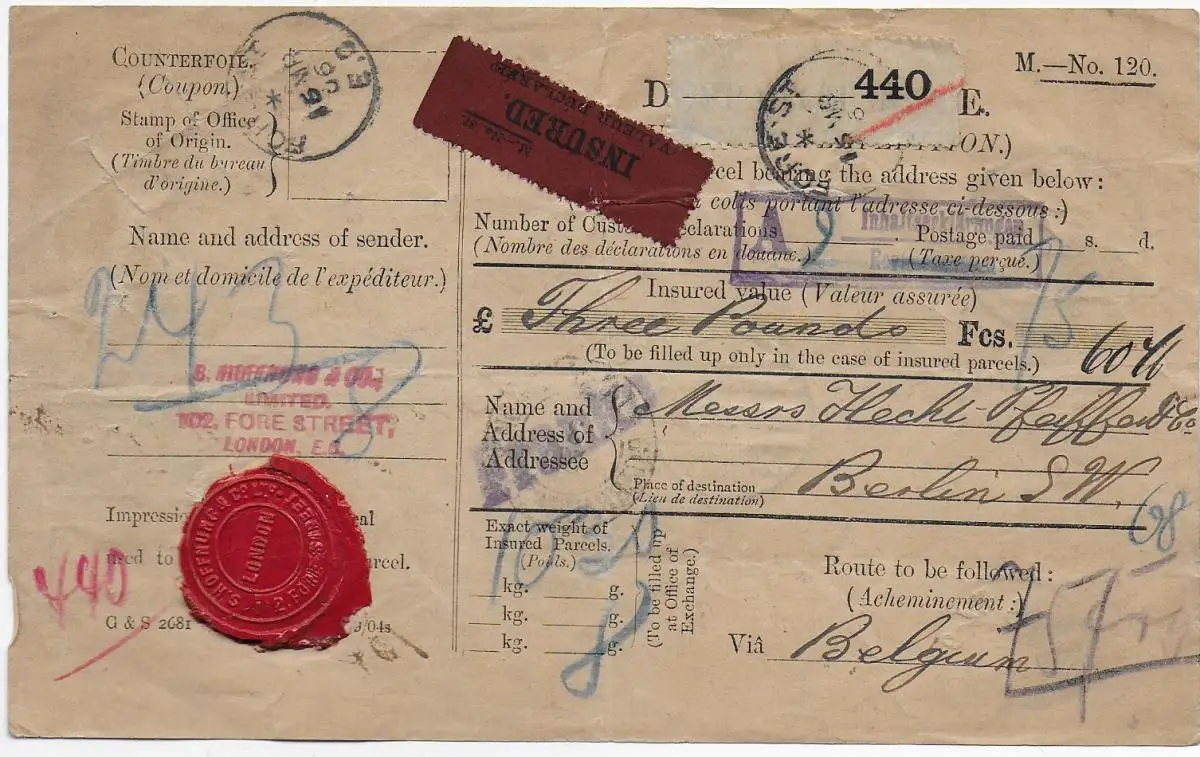 COUNTERFOIL.
(Coupon)
Stamp of Office
of Origin.
(Timbre du bureau
d'origine.)
FORE ST
E.C
Name and address of sender.
(Nom et domicile de l'expéditeur.)
243
8
S. HOFFNUNG & CO.,
LIMITED.
102, FORE STREET,
LONDON, E.C.
Impressio
al
used to
arcel.
S. HOFFNUNG & CO LTD
LONDON
440
G & S 2681
/04s
M.—No. 120.
INSURED.
VALEUR DECLAREE
D
440
E.
ON.)
FORE ST
rcel bearing the address given below:
colis portant l'adresse ci-dessous:)
Number of Customs Declarations
(Nombre des déclarations en douane.)
A
Inhaltserklärungen
Postage paid s. d.
(Taxe perçue.)
Insured value (Valeur assurée)
£ Three Pounds Fcs.
(To be filled up only in the case of insured parcels.)
Name and
Address of
Addressee
Messrs Hecht Pfeiffer & Co
Berlin S W.
Place of destination
(Lieu de destination)
68
Exact weight of
Insured Parcels.
(Poids.)
kg. g.
kg. g.
kg. g.
(To be filled up
at Office of
Exchange.)
8
Route to be followed:
(Acheminement:)
Viâ Belgium